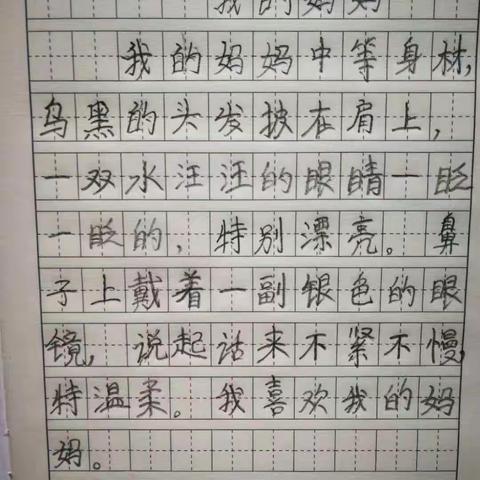 我的妈妈
我的妈妈中等身材,
乌黑的头发披在肩上,
一双水汪汪的眼睛一眨
一眨的,特别漂亮。鼻
子上戴着一副银色的眼
镜,说起话来不紧不慢,
特温柔。我喜欢我的妈
妈。